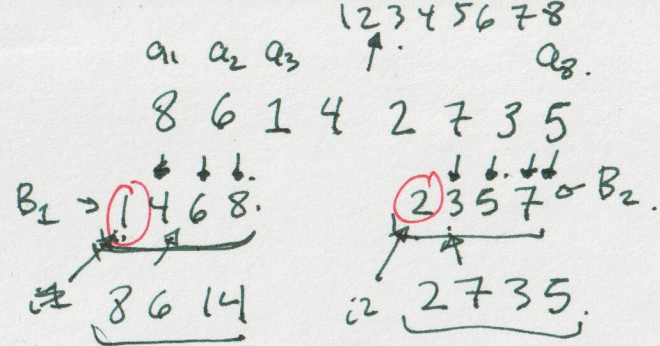 1 2 3 4 5 6 7 8
a1 a2 a3 a8.
8 6 1 4 2 7 3 5
B1 → 1 4 6 8. 2 3 5 7 B2.
8 6 1 4 i2 2 7 3 5.